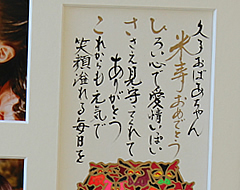 久子おばあちゃん
米寿おめでとう
ひろい心で愛情いっぱい
ささえ見守ってくれて
ありがとう
これからも元気で
笑顔溢れる毎日を